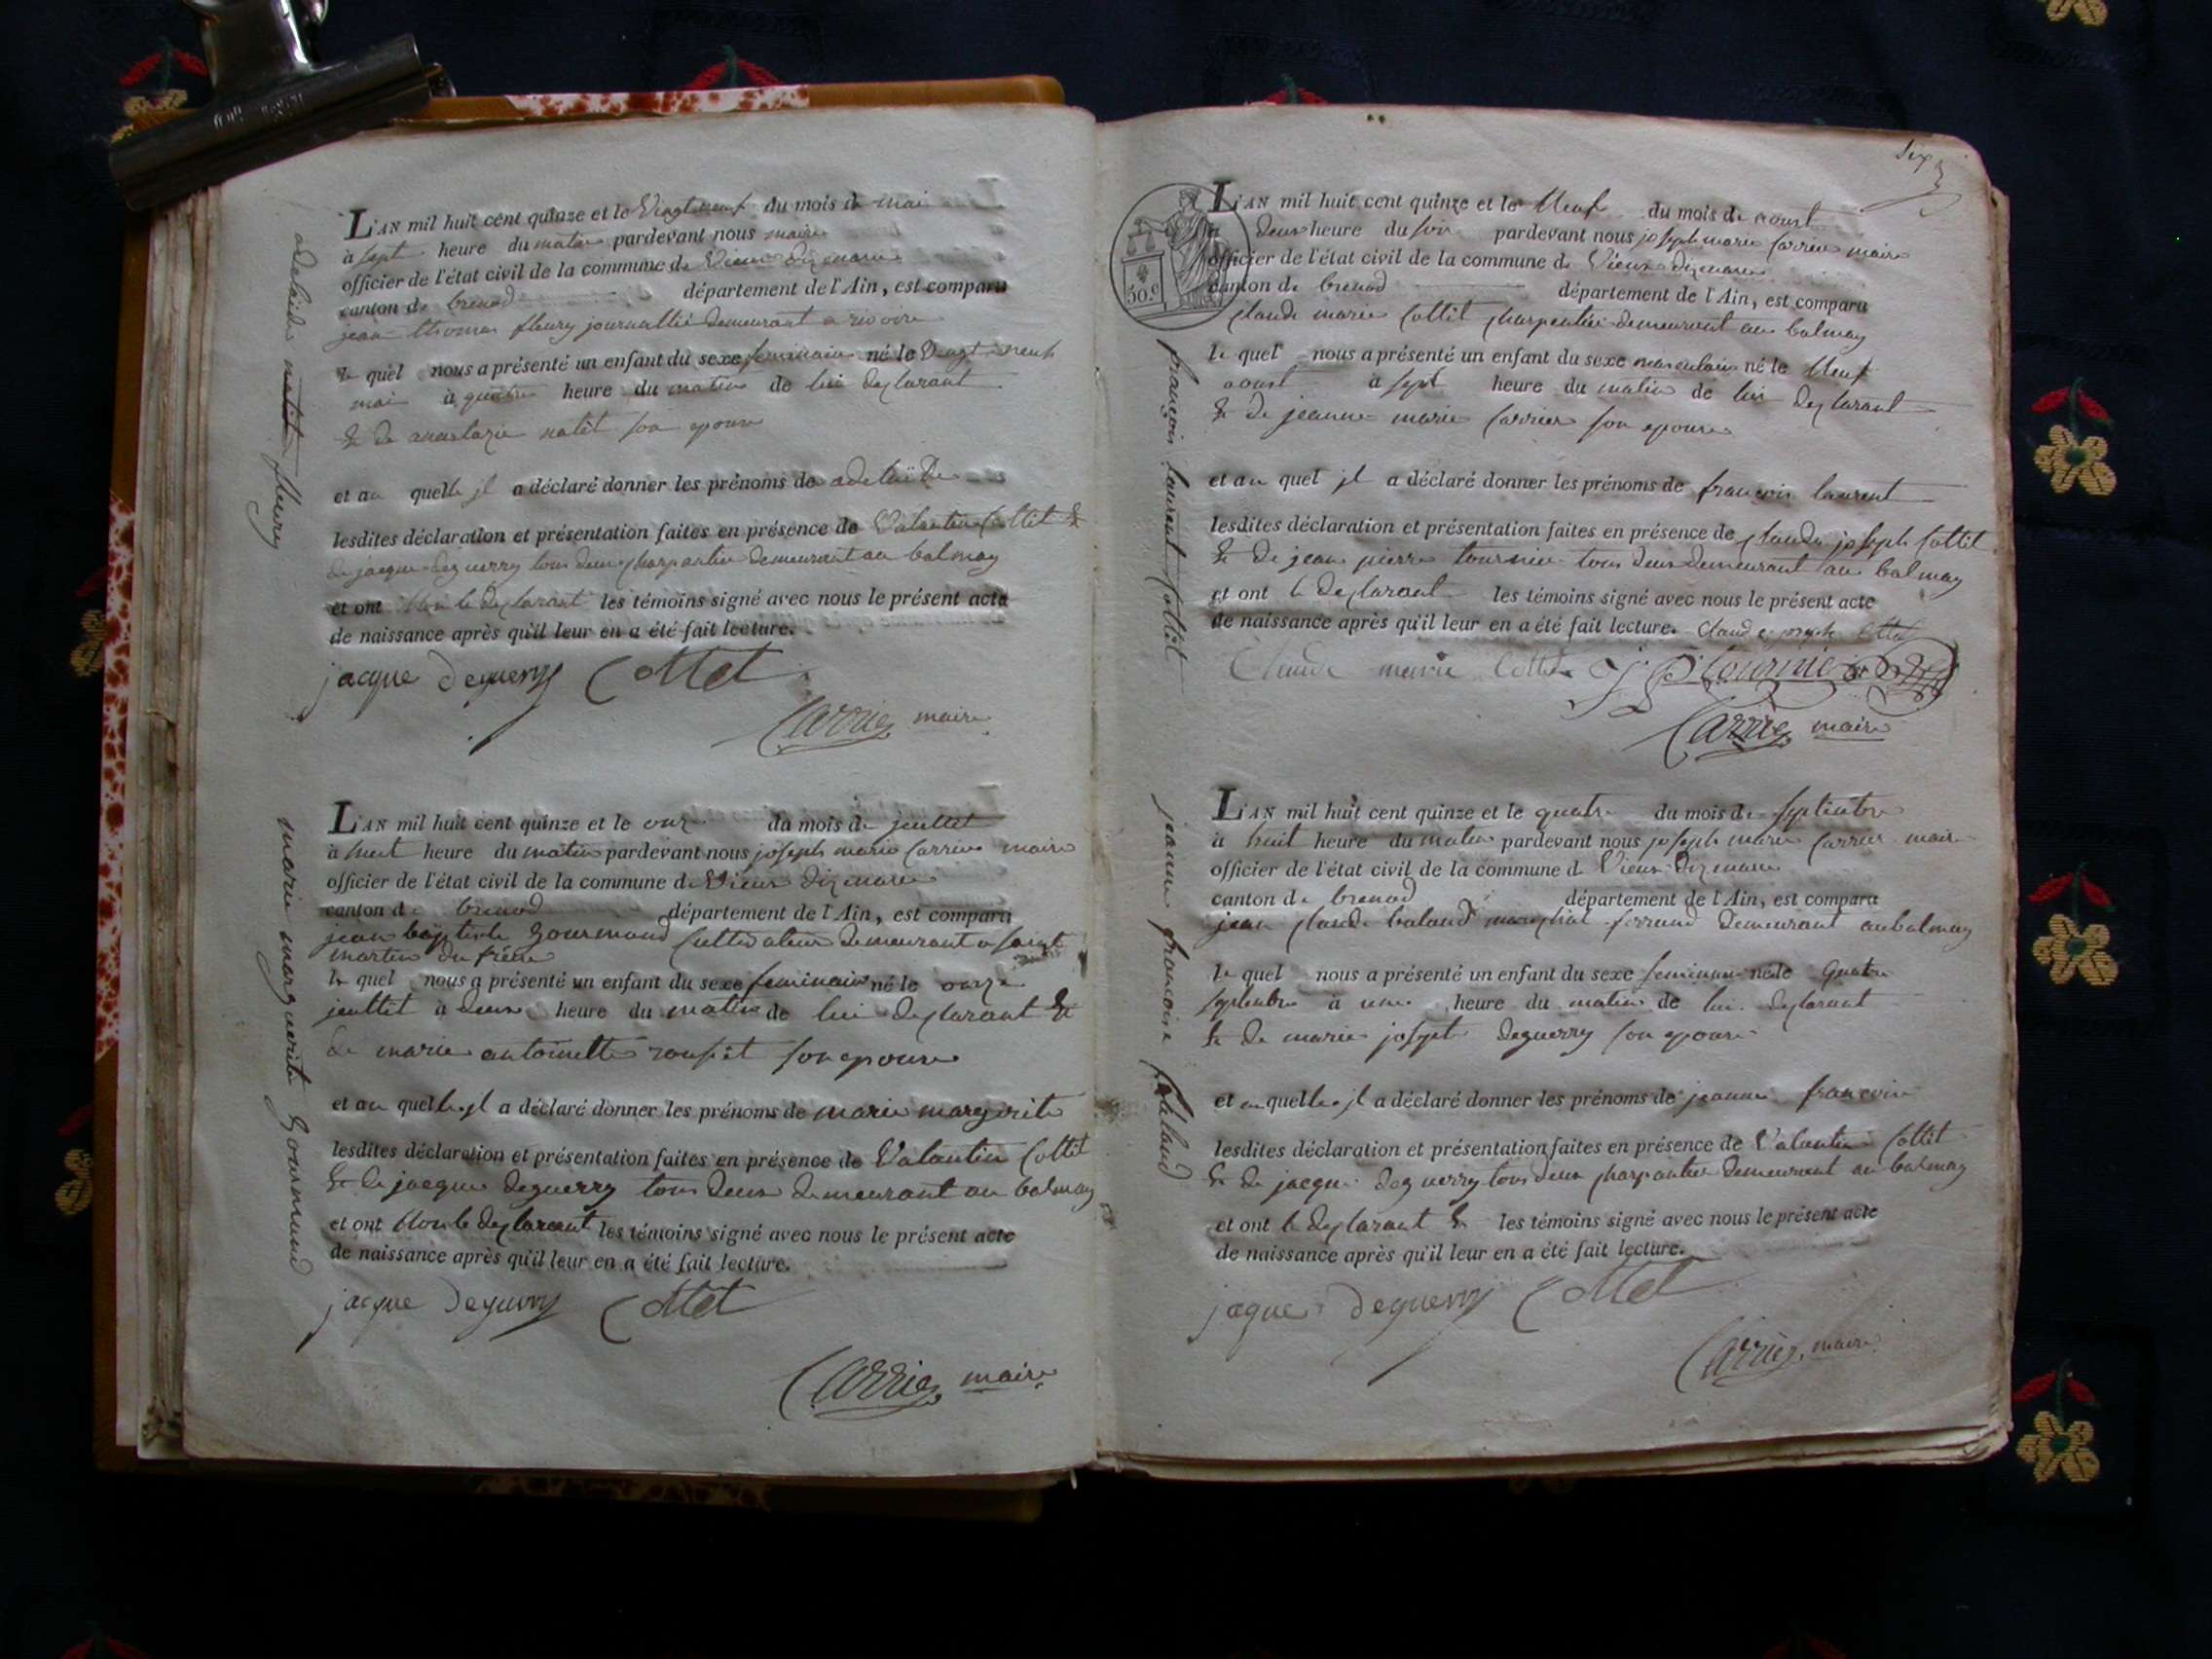 L'AN mil huit cent quinze et le Vingt neuf du mois de mai
à sept heure du matin pardevant nous maire
officier de l'état civil de la commune de Vieux dizenave
canton de brenod département de l'Ain, est comparu
jean thomas fleury journallié demeurant a
le quel nous a présenté un enfant du sexe feminain né le Vingt neuf
mai à quatre heure du matin de lui desclarant
& de anastazie natêt son epouse
et au quelle jl a déclaré donner les prénoms de adelaïde
lesdites déclaration et présentation faites en présence de Valantin Cottet &
de jacque deguerry tous deux charpantier demeurant au balmay
et ont Non le desclarant les témoins signé avec nous le présent acte
de naissance après qu'il leur en a été fait lecture.
jacque deguerry Cottet
Carrier maire
adelaide natêt fleury
L'AN mil huit cent quinze et le onze du mois de jeullet
à huit heure du matin pardevant nous joseph marie Carrier maire
officier de l'état civil de la commune de Vieux dizenave
canton de brenod département de l'Ain, est comparu
jean baptiste Gourmand Cultivateur demeurant a saint
martin du frêne
le quel nous a présenté un enfant du sexe feminain né le onze
jeullet à deux heure du matin de lui desclarant &
de marie antoinette rousset son epouse
et au quelle jl a déclaré donner les prénoms de marie margerite
lesdites déclaration et présentation faites en présence de Valantin Cottet
& de jacque deguerry tous deux demeurant au balmay
et ont Non le desclarant les témoins signé avec nous le présent acte
de naissance après qu'il leur en a été fait lecture.
jacque deguerry Cottet
Carrier maire
marie marguerite Gourmand
six
50.c
L'AN mil huit cent quinze et le Neuf du mois de aoust
à deux heure du soir pardevant nous joseph marie Carrier maire
officier de l'état civil de la commune de Vieux dizenave
canton de brenod département de l'Ain, est comparu
Claude marie Cottet charpentier demeurant au balmay
le quel nous a présenté un enfant du sexe masculain né le Neuf
aoust à sept heure du matin de lui desclarant
& de jeanne marie Carrier son epouse
et au quel jl a déclaré donner les prénoms de françois laurent
lesdites déclaration et présentation faites en présence de Claude joseph Cottet
& de jean pierre tournier tous deux demeurant au balmay
et ont le desclarant les témoins signé avec nous le présent acte
de naissance après qu'il leur en a été fait lecture. Claude joseph Cottet
Claude marie Cottet J P tournier
Carrier maire
françois laurent Cottet
L'AN mil huit cent quinze et le quatre du mois de septembre
à huit heure du matin pardevant nous joseph marie Carrier maire
officier de l'état civil de la commune de Vieux dizenave
canton de brenod département de l'Ain, est comparu
jean Claude baland marechal ferrand demeurant au balmay
le quel nous a présenté un enfant du sexe feminain né le Quatre
septembre à une heure du matin de lui desclarant
& de marie joseph deguerry son epouse
et au quelle jl a déclaré donner les prénoms de jeanne françoise
lesdites déclaration et présentation faites en présence de Valantin Cottet
& de jacque deguerry tous deux charpantier demeurant au balmay
et ont le desclarant & les témoins signé avec nous le présent acte
de naissance après qu'il leur en a été fait lecture.
jaque deguerry Cottet
Carrier maire
jeanne françoise balland